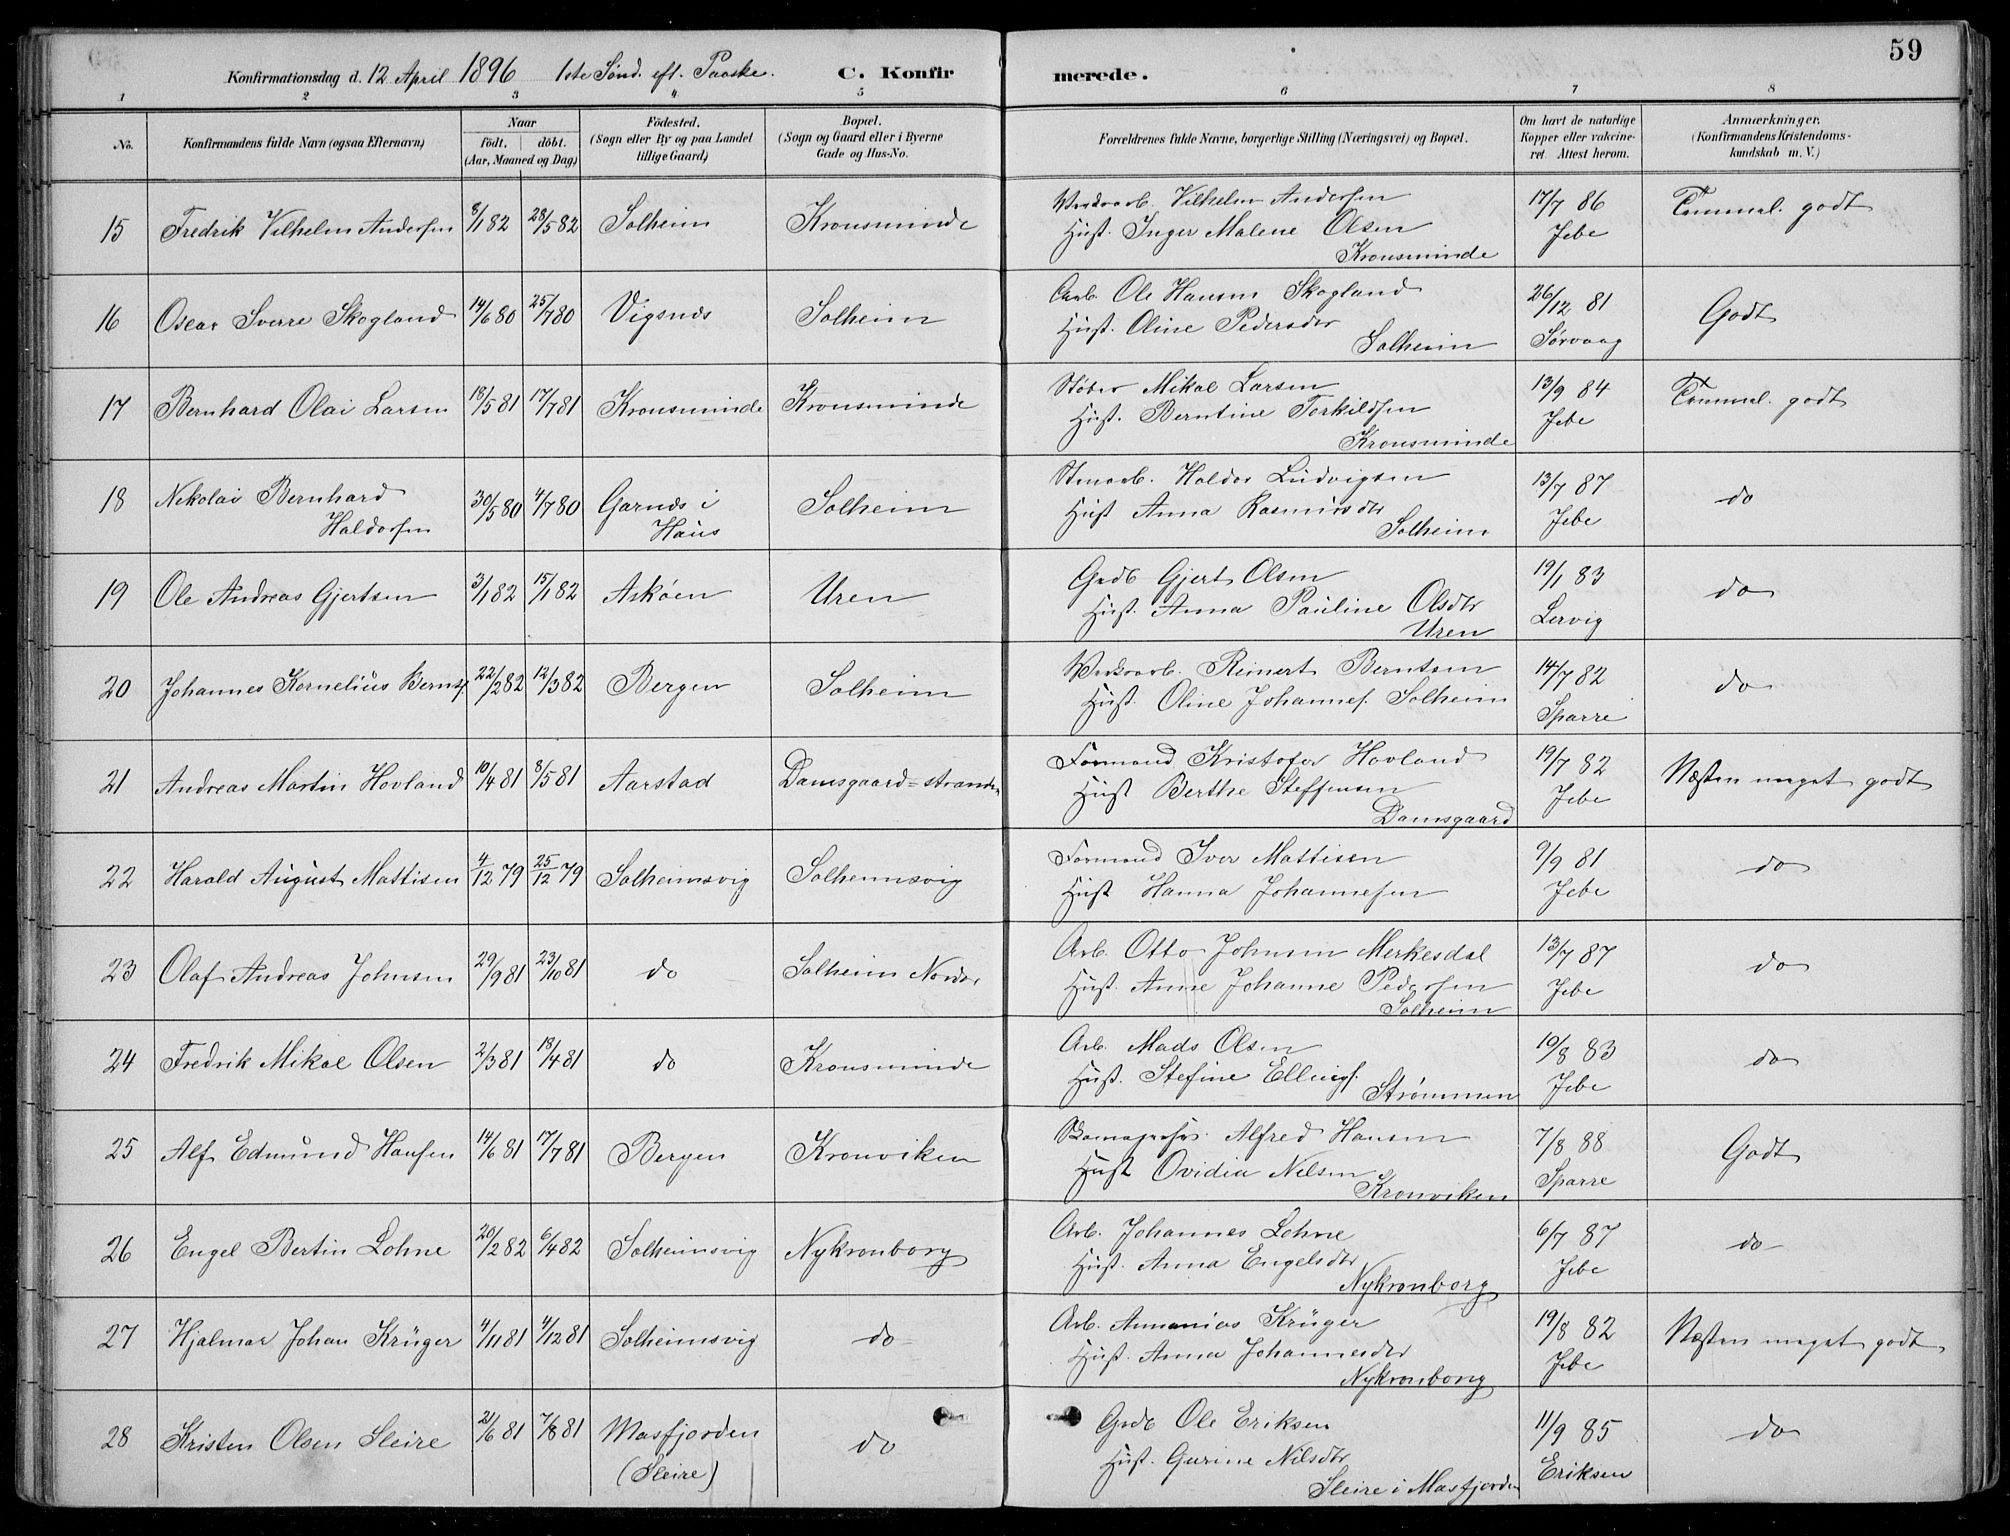 59
Konfirmationsdag d. 12 April 1896 1ste Sønd. eft. Paaske. C. Konfirmerede.
1 2 3 4 5 6 7 8
No. Konfirmandens fulde Navn (ogsaa Efternavn) Naar födt. döbt. (Aar, Maaned og Dag) Födested. (Sogn eller By og paa Landet tillige Gaard) Bopæl. (Sogn og Gaard eller i Byerne Gade og Hus-No. Forældrenes fulde Navne, borgerlige Stilling (Næringsvei) og Bopæl. Om havt de naturlige Kopper eller vakcineret. Attest herom. Anmærkninger. (Konfirmandens Kristendomskundskab m. V.)
15 Fredrik Vilhelm Andersen 8/1 82 28/5 82 Solheim Kronsminde Verksarb. Vilhelm Andersen 17/7 86 Temmel. godt
Hust. Inger Malene Olsen Jebe
Kronsminde
16 Oscar Sverre Skogland 14/6 80 25/7 80 Vigsnæs Solheim Arb. Ole Hansen Skogland 26/12 81 Godt
Hust. Oline Pedersdtr Sørvaag
Solheim
17 Bernhard Olai Larsen 18/5 81 17/7 81 Kronsminde Kronsminde Støber Mikal Larsen 13/9 84 Temmel. godt
Hust. Berntine Torkildsen Jebe
Kronsminde
18 Nikolai Bernhard Haldorsen 30/5 80 4/7 80 Garnæs i Haus Solheim Stenarb. Haldor Ludvigsen 13/7 87 do
Hust Anna Rasmusdtr Jebe
Solheim
19 Ole Andreas Gjertsen 3/1 82 15/1 82 Askøen Uren Grdb Gjert Olsen 19/1 83 do
Hust. Anna Pauline Olsdtr Lervig
Uren
20 Johannes Kornelius Berns. 22/2 82 12/3 82 Bergen Solheim Verksarb. Reinert Berntsen 14/7 82 do
Hust. Oline Johannes. Solheim Sparre
21 Andreas Martin Hovland 10/4 81 8/5 81 Aarstad Damsgaard=stranden Formand Kristofer Hovland 19/7 82 Næsten meget godt
Hust Berthe Steffensen Jebe
Damsgaard
22 Harald August Mattisen 4/12 79 25/12 79 Solheimsvig Solheimsvig Formand Iver Mattisen 9/9 81 do
Hust Hanna Johannesen Jebe
23 Olaf Andreas Johnsen 29/9 81 23/10 81 do Solheim Nordr Arb. Otto Johnsen Merkesdal 13/7 87 do
Hust. Anne Johanne Pedersen Jebe
Solheim
24 Fredrik Mikal Olsen 2/3 81 18/4 81 do Kronsminde Arb. Mads Olsen 10/8 83 do
Hust. Stefine Ellings. Jebe
Strømmen
25 Alf Edmund Hansen 14/6 81 17/7 81 Bergen Kronviken Alfred Hansen 7/8 88 Godt
Hust Ovidia Nilsen Sparre
Kronviken
26 Engel Bertin Lohne 20/2 82 6/4 82 Solheimsvig Nykronborg Arb. Johannes Lohne 6/7 87 do
Hust. Anna Engelsdtr Jebe
Nykronborg
27 Hjalmar Johan Krüger 4/11 81 4/12 81 Solheimsvig do Arb. Annanias Krüger 19/8 82 Næsten meget godt
Hust. Anna Johannesdtr Jebe
Nykronborg
28 Kristen Olsen Sleire 21/6 81 7/8 81 Masfjorden (Sleire) do Grdb Ole Eriksen 11/9 85 do
Hust. Gurine Nilsdtr Eriksen
Sleire i Masfjorden